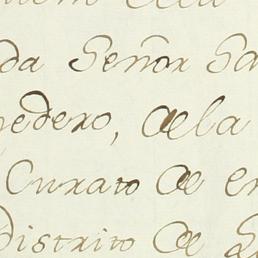 da Señor Sa
nedero, de la
Curato de en
Distrito de